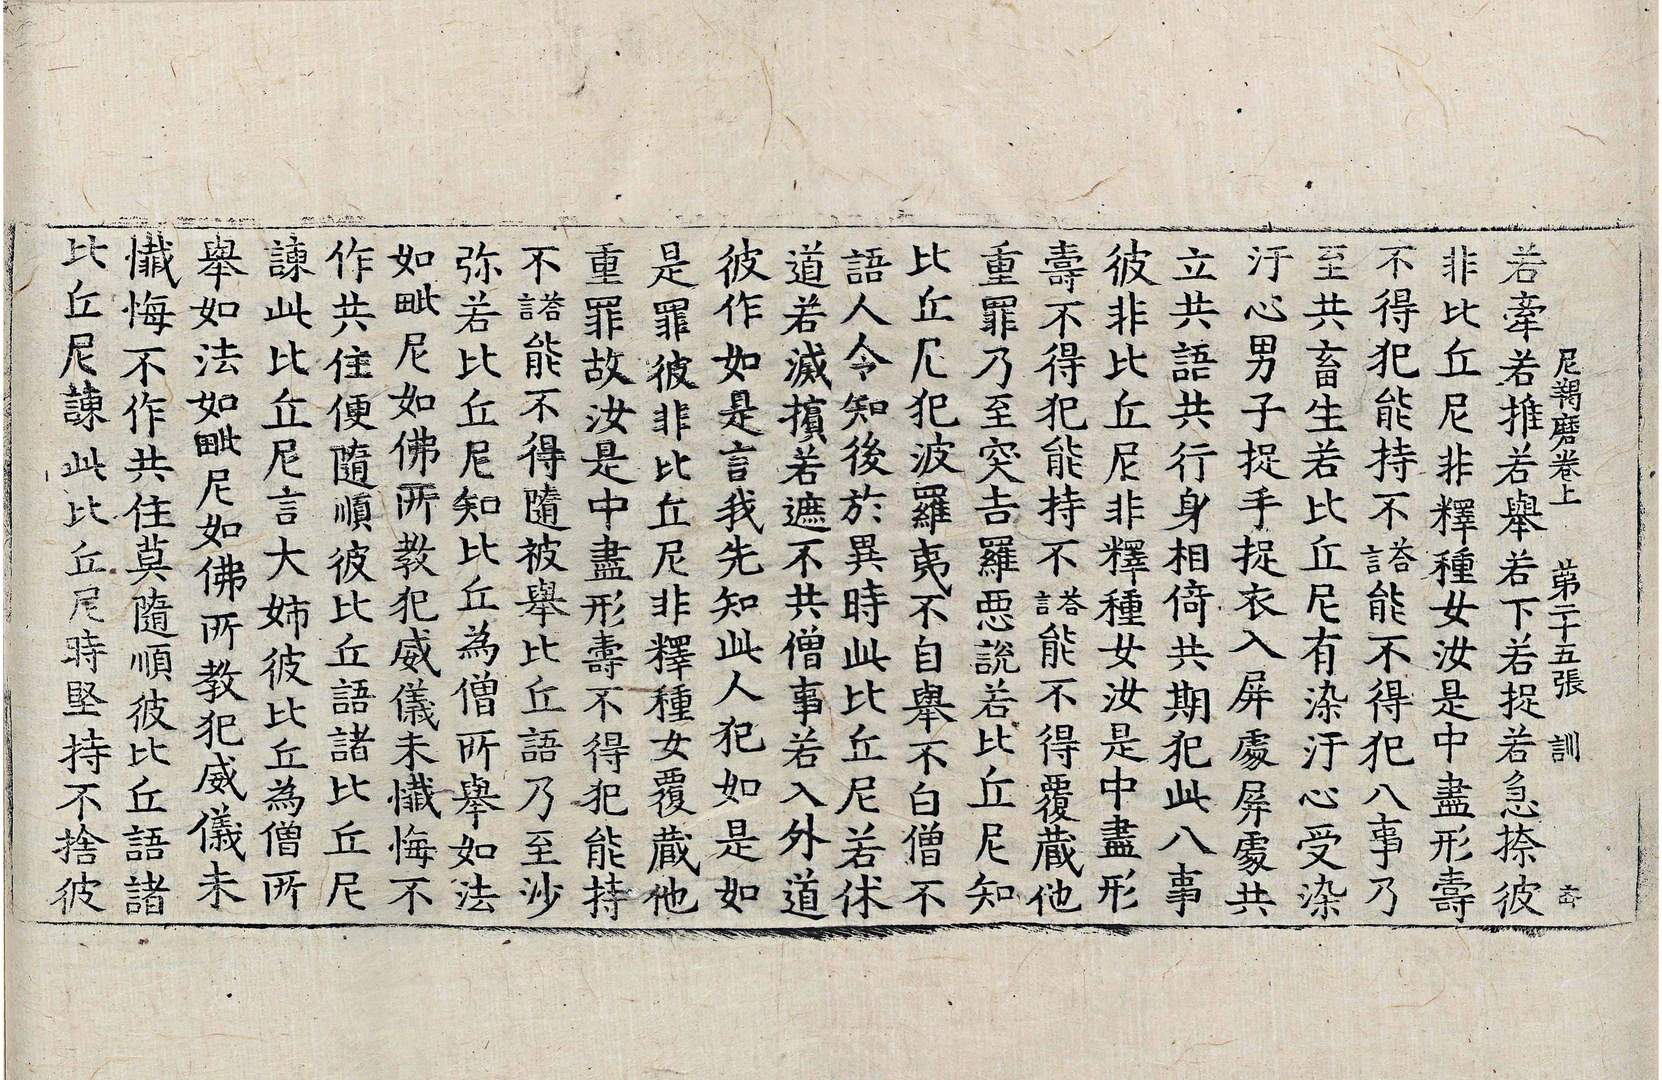 尼羯磨卷上 第二十五張 訓
若牽若推若舉若下若捉若急捺彼
非比丘尼非釋種女汝是中盡形壽
不得犯能持不答言能不得犯八事乃
至共畜生若比丘尼有染汙心受染
汙心男子捉手捉衣入屏處屏處共
立共語共行身相倚共期犯此八事
彼非比丘尼非釋種女汝是中盡形
壽不得犯能持不答言能不得覆藏他
重罪乃至突吉羅惡說若比丘尼知
比丘尼犯波羅夷不自舉不白僧不
語人令知後於異時此比丘尼若休
道若滅擯若遮不共僧事若入外道
彼作如是言我先知此人犯如是如
是罪彼非比丘尼非釋種女覆藏他
重罪故汝是中盡形壽不得犯能持
不答言能不得隨被舉比丘語乃至沙
弥若比丘尼知比丘為僧所舉如法
如毗尼如佛所教犯威儀未懺悔不
作共住便隨順彼比丘語諸比丘尼
諫此比丘尼言大姊彼比丘為僧所
舉如法如毗尼如佛所教犯威儀未
懺悔不作共住莫隨順彼比丘語諸
比丘尼諫此比丘尼時堅持不捨彼